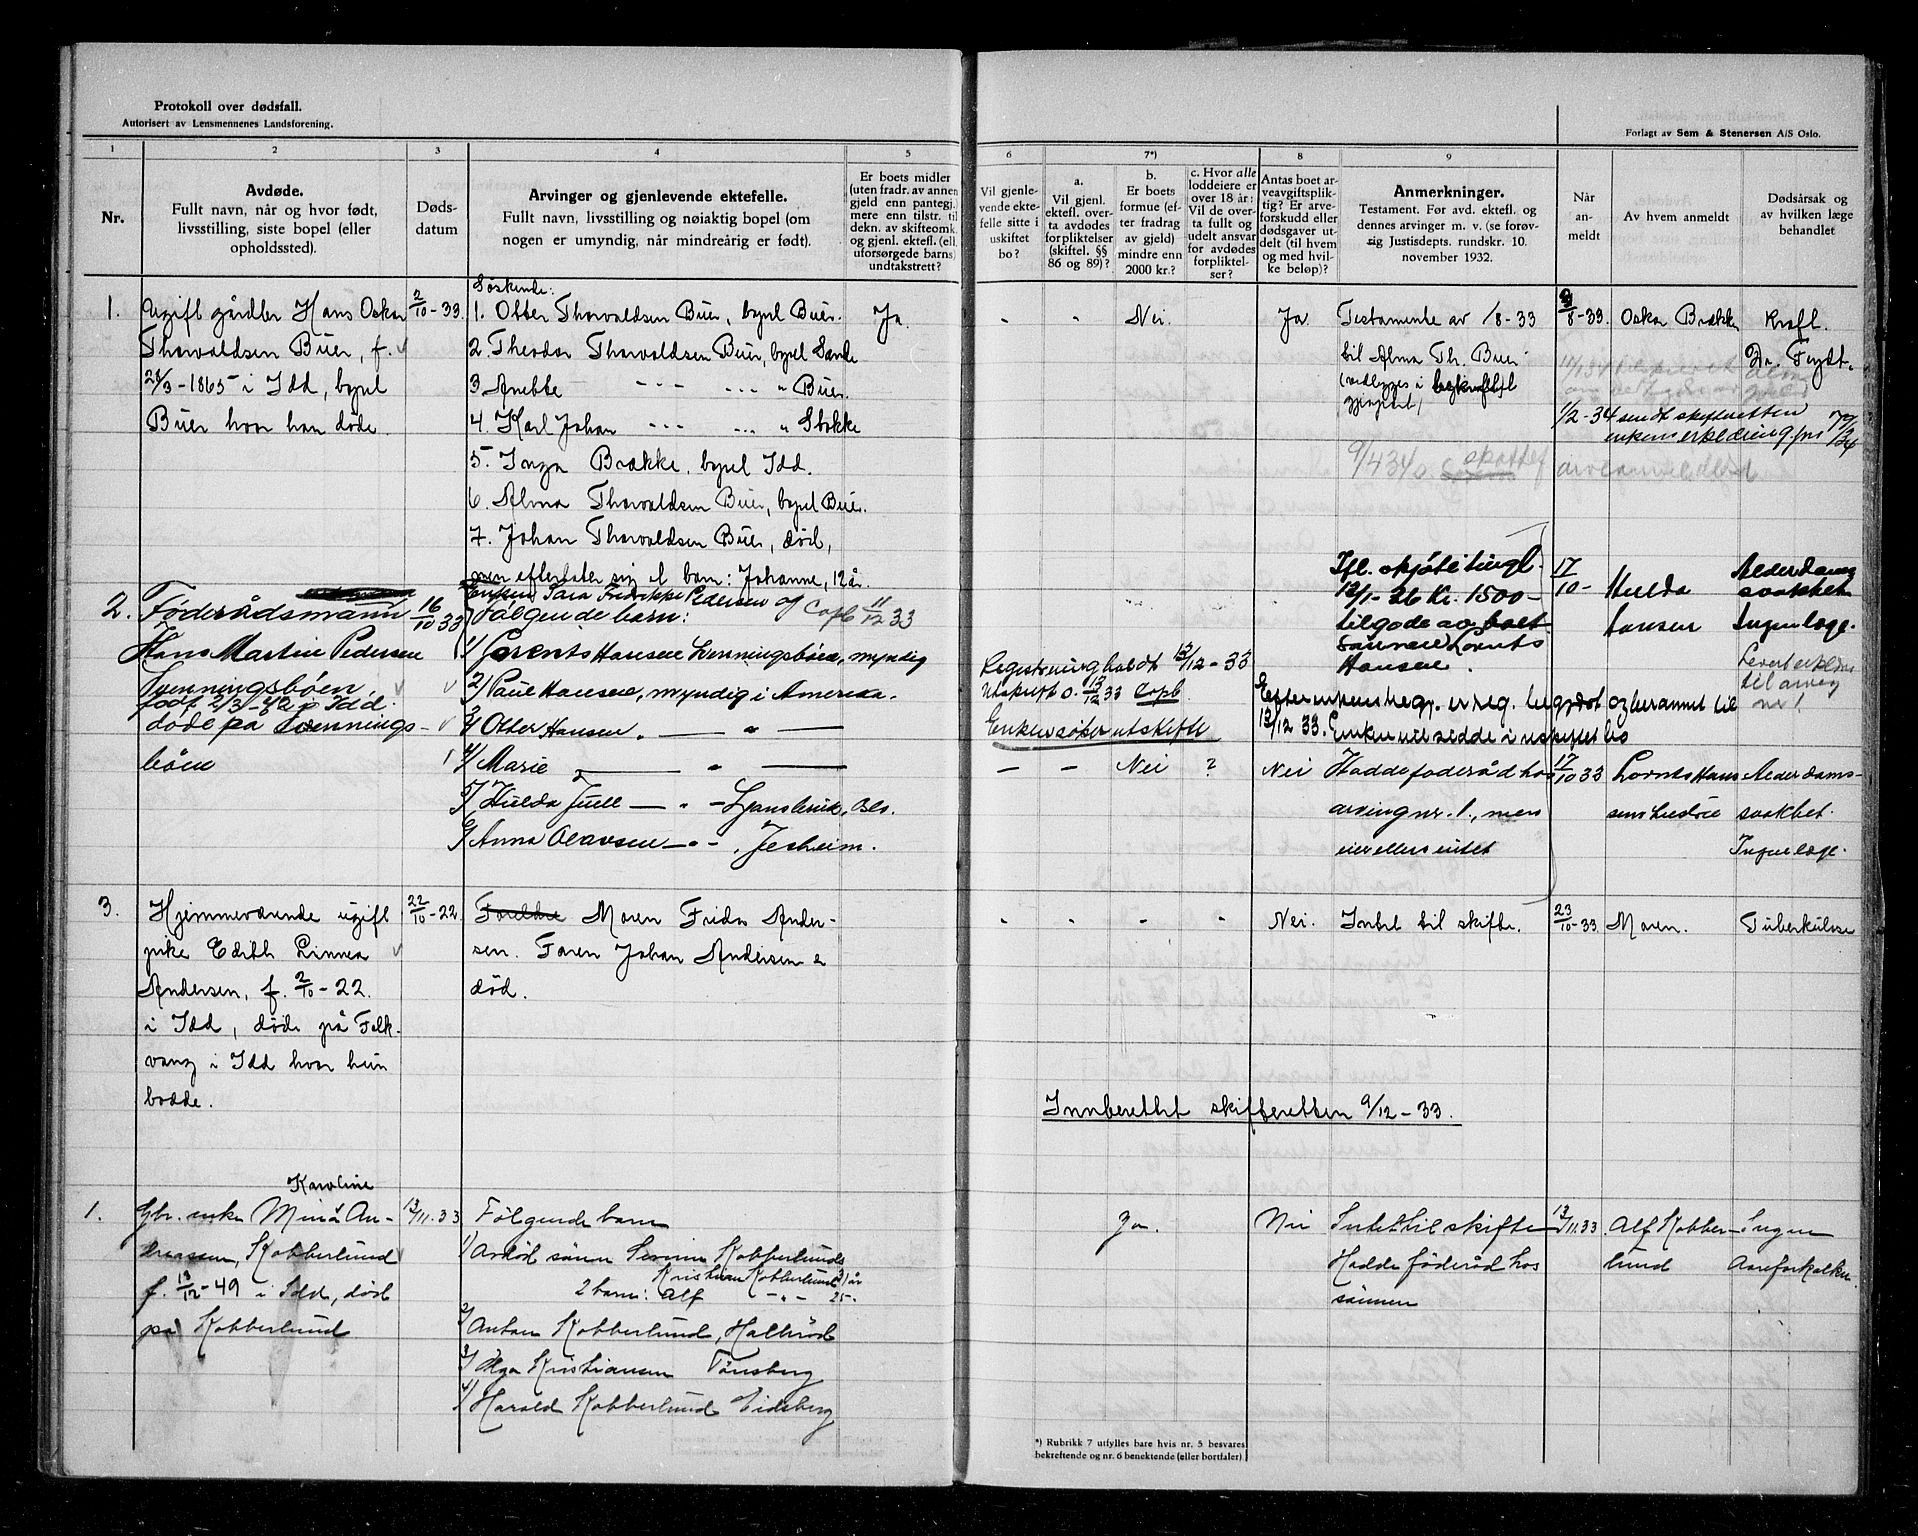 Protokoll over dødsfall.
Autorisert av Lensmennenes Landsforening.
Forlagt av Sem & Stenersen A/S Oslo.
1 2 3 4 5 6 7*) 8 9
Nr.
Avdøde.
Fullt navn, når og hvor født,
livsstilling, siste bopel (eller
opholdssted).
Døds-
datum
Arvinger og gjenlevende ektefelle.
Fullt navn, livsstilling og nøiaktig bopel (om
nogen er umyndig, når mindreårig er født).
Er boets midler
(uten fradr. av annen
gjeld enn pantegj.)
mere enn tilstr. til
dekn. av skifteomk.
og gjenl. ektef. (ell.
uforsørgede barns)
undtakstrett?
Vil gjenle-
vende ekte-
felle sitte i
uskiftet
bo?
a.
Vil gjenl.
ektefl. over-
ta avdødes
forpliktelser
(skiftel. §§
86 og 89)?
b.
Er boets
formue (ef-
ter fradrag
av gjeld)
mindre enn
2000 kr.?
c. Hvor alle
loddeiere er
over 18 år:
Vil de over-
ta fullt og
udelt ansvar
for avdødes
forpliktel-
ser?
Antas boet ar-
veavgiftsplik-
tig? Er arve-
forskudd eller
dødsgaver ut-
delt (til hvem
og med hvil-
ke beløp)?
Anmerkninger.
Testament. Før avd. ektefl. og
dennes arvinger m. v. (se forøv-
rig Justisdepts. rundskr. 10.
november 1932.
Når
an-
meldt
Av hvem anmeldt
Dødsårsak og
av hvilken læge
behandlet
1.
Ugift gårdbr Hans Oskar
Thorvaldsen Buer, f.
28/3-1865 i Idd, bopel
Buer hvor han døde.
2/10-33
Søskende:
1. Otter Thorvaldsen Buer, bopel Buer.
2. Theodor Thorvaldsen Buer, bopel Sande
3 Anette --- --- " Buer.
4. Karl Johan --- --- " Stokke
5. Inga Brække, bopel Idd.
6. Alma Thorvaldsen Buer, bopel Buer.
7. Johan Thorvaldsen Buer, død,
men efterlater sig et barn: Johanne, 12 år.
Ja
- - Nei. Ja.
Testamente av 1/8-33
til Alma Th. Buer
(vedlegges i
gjenpart,
9/4 34
-33. Oskar Brække
Kreft.
Dr. Frydt.
1/2-34 sendt skifteretten
enkens erklæring
2.
Føderådsmann
Hans Martin Pedersen
Svenningsbøen.
født 2/3-42 i Idd.
døde på Svennings-
bøen
16/10 33
Enken Sara Fredrikke Pedersen og
Følgende barn: Copb 11/12 33
1/ Lorents Hansen Svenningsbøen, myndig
2/ Paul Hansen, myndig i Amerika.
3/ Otter Hansen, — " —
4/ Marie — " —
5/ Hulda Juell — " — Ljansbruk, Osl.
6/ Anna Olavsen — " — , Jesheim.
Registrering holdt 12/12-33
Utskrift o. 13/12 33 Copb
Enken søker utskifte
— — Nei ?
Nei
Ifl. skjøte tingl.
12/1-26 Kr. 1500-
tilgode av boet
sønnen Lornts
Hansen.
Efter enkens begj. er reg. begjært og berammet til
12/12 33. Enken vil sidde i uskiftet bo
Hadde foderåd hos
arving nr. 1., men
eier ellers intet
17/10- Hulda
Hansen
Alderdoms
svakhet
Ingen læge.
17/10 33 Lornts Hans
sens hustrue
Alderdoms-
svakhet.
Ingen læge.
3.
Hjemmeværende ugift
pike Edith Linnea
Andersen, f. 2/10-22.
i Idd, døde på Folk-
vang i Idd hvor hun
bodde.
22/10-22.
Foreldre Moren Frida Ander-
sen. Faren Johan Andersen e
død.
- - - -
Nei. Intet til skifte.
23/10-33 Moren. Tuberkulose
Innberettet skifteretten 9/12-33.
1.
Karoline
Gbr. enke Mina An-
dreassen, Kobberlund
f. 13/12-49 i Idd, død
på Kobberlund
13/11.33
Følgende barn
1/ Avdød sønn Severin Kobberlunds
2 barn: Kristian Kobberlund 31 år
Alf -"- 25-
2/ Anton Kobberlund, Halkrød
3/ Olga Kristiansen Tönsberg
4/ Harald Kobberlund Eidsberg
Ja. Nei
Intet til skifte
Hadde föderåd hos
sönnen
13/11.33 Alf Kobber-
lund
Ingen
Aareforkalkn.
*) Rubrikk 7 utfylles bare hvis nr. 5 besvares
bekreftende og nr. 6 benektende (eller bortfaler)